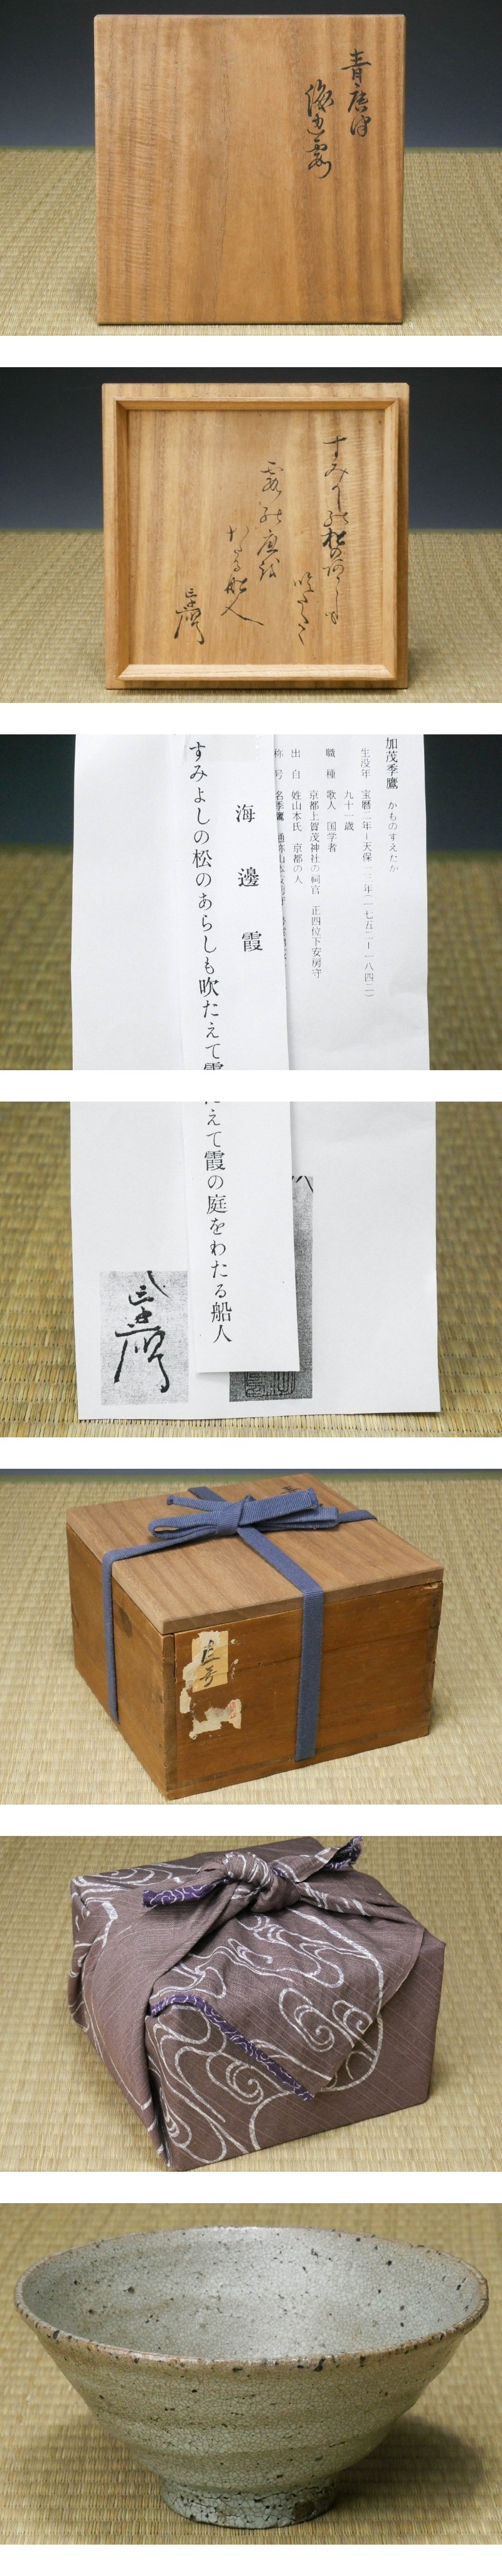 青唐津
海邊霞
すみよしの松のあらしも
吹たえて
霞の庭を
わたる船人
季鷹
加茂季鷹 かものすえたか
生没年 宝暦二年ー天保一二年(一七五二ー一八四二)
九十一歳
職種 歌人 国学者
京都上賀茂神社の祠官 正四位下安房守
出自 姓山本氏 京都の人
称号 名季鷹
海邊霞
すみよしの松のあらしも吹たえて霞
たえて霞の庭をわたる船人
季鷹